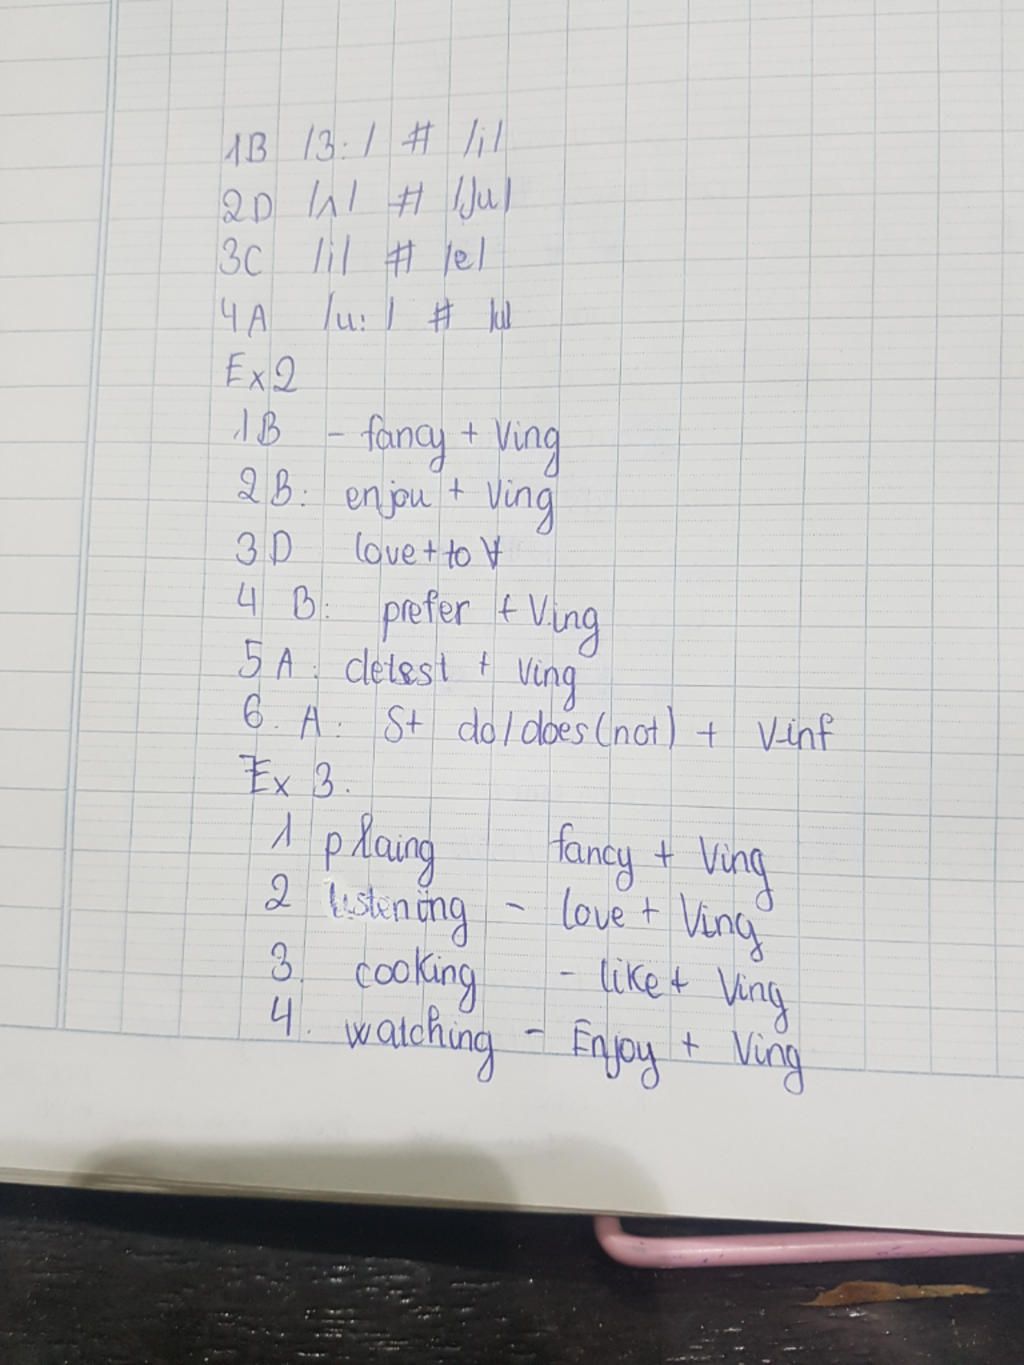 1B /3:/ # /i/
2D /ʌ/ # /Ju/
3C /i/ # /e/
4A /u:/ # /u/
Ex2
1B - fancy + Ving
2B: enjou + Ving
3D love + to V
4 B: prefer + Ving
5 A: detest + Ving
6. A: S+ do/does(not) + V-inf
Ex 3.
1 plaing fancy + Ving
2 listening - love + Ving
3. cooking - like + Ving
4. watching - Enjoy + Ving